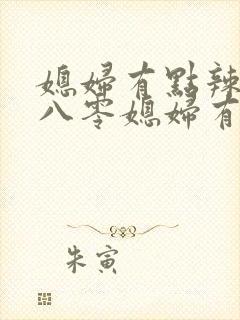 媳婦有點辣
八零媳婦有
朱寅